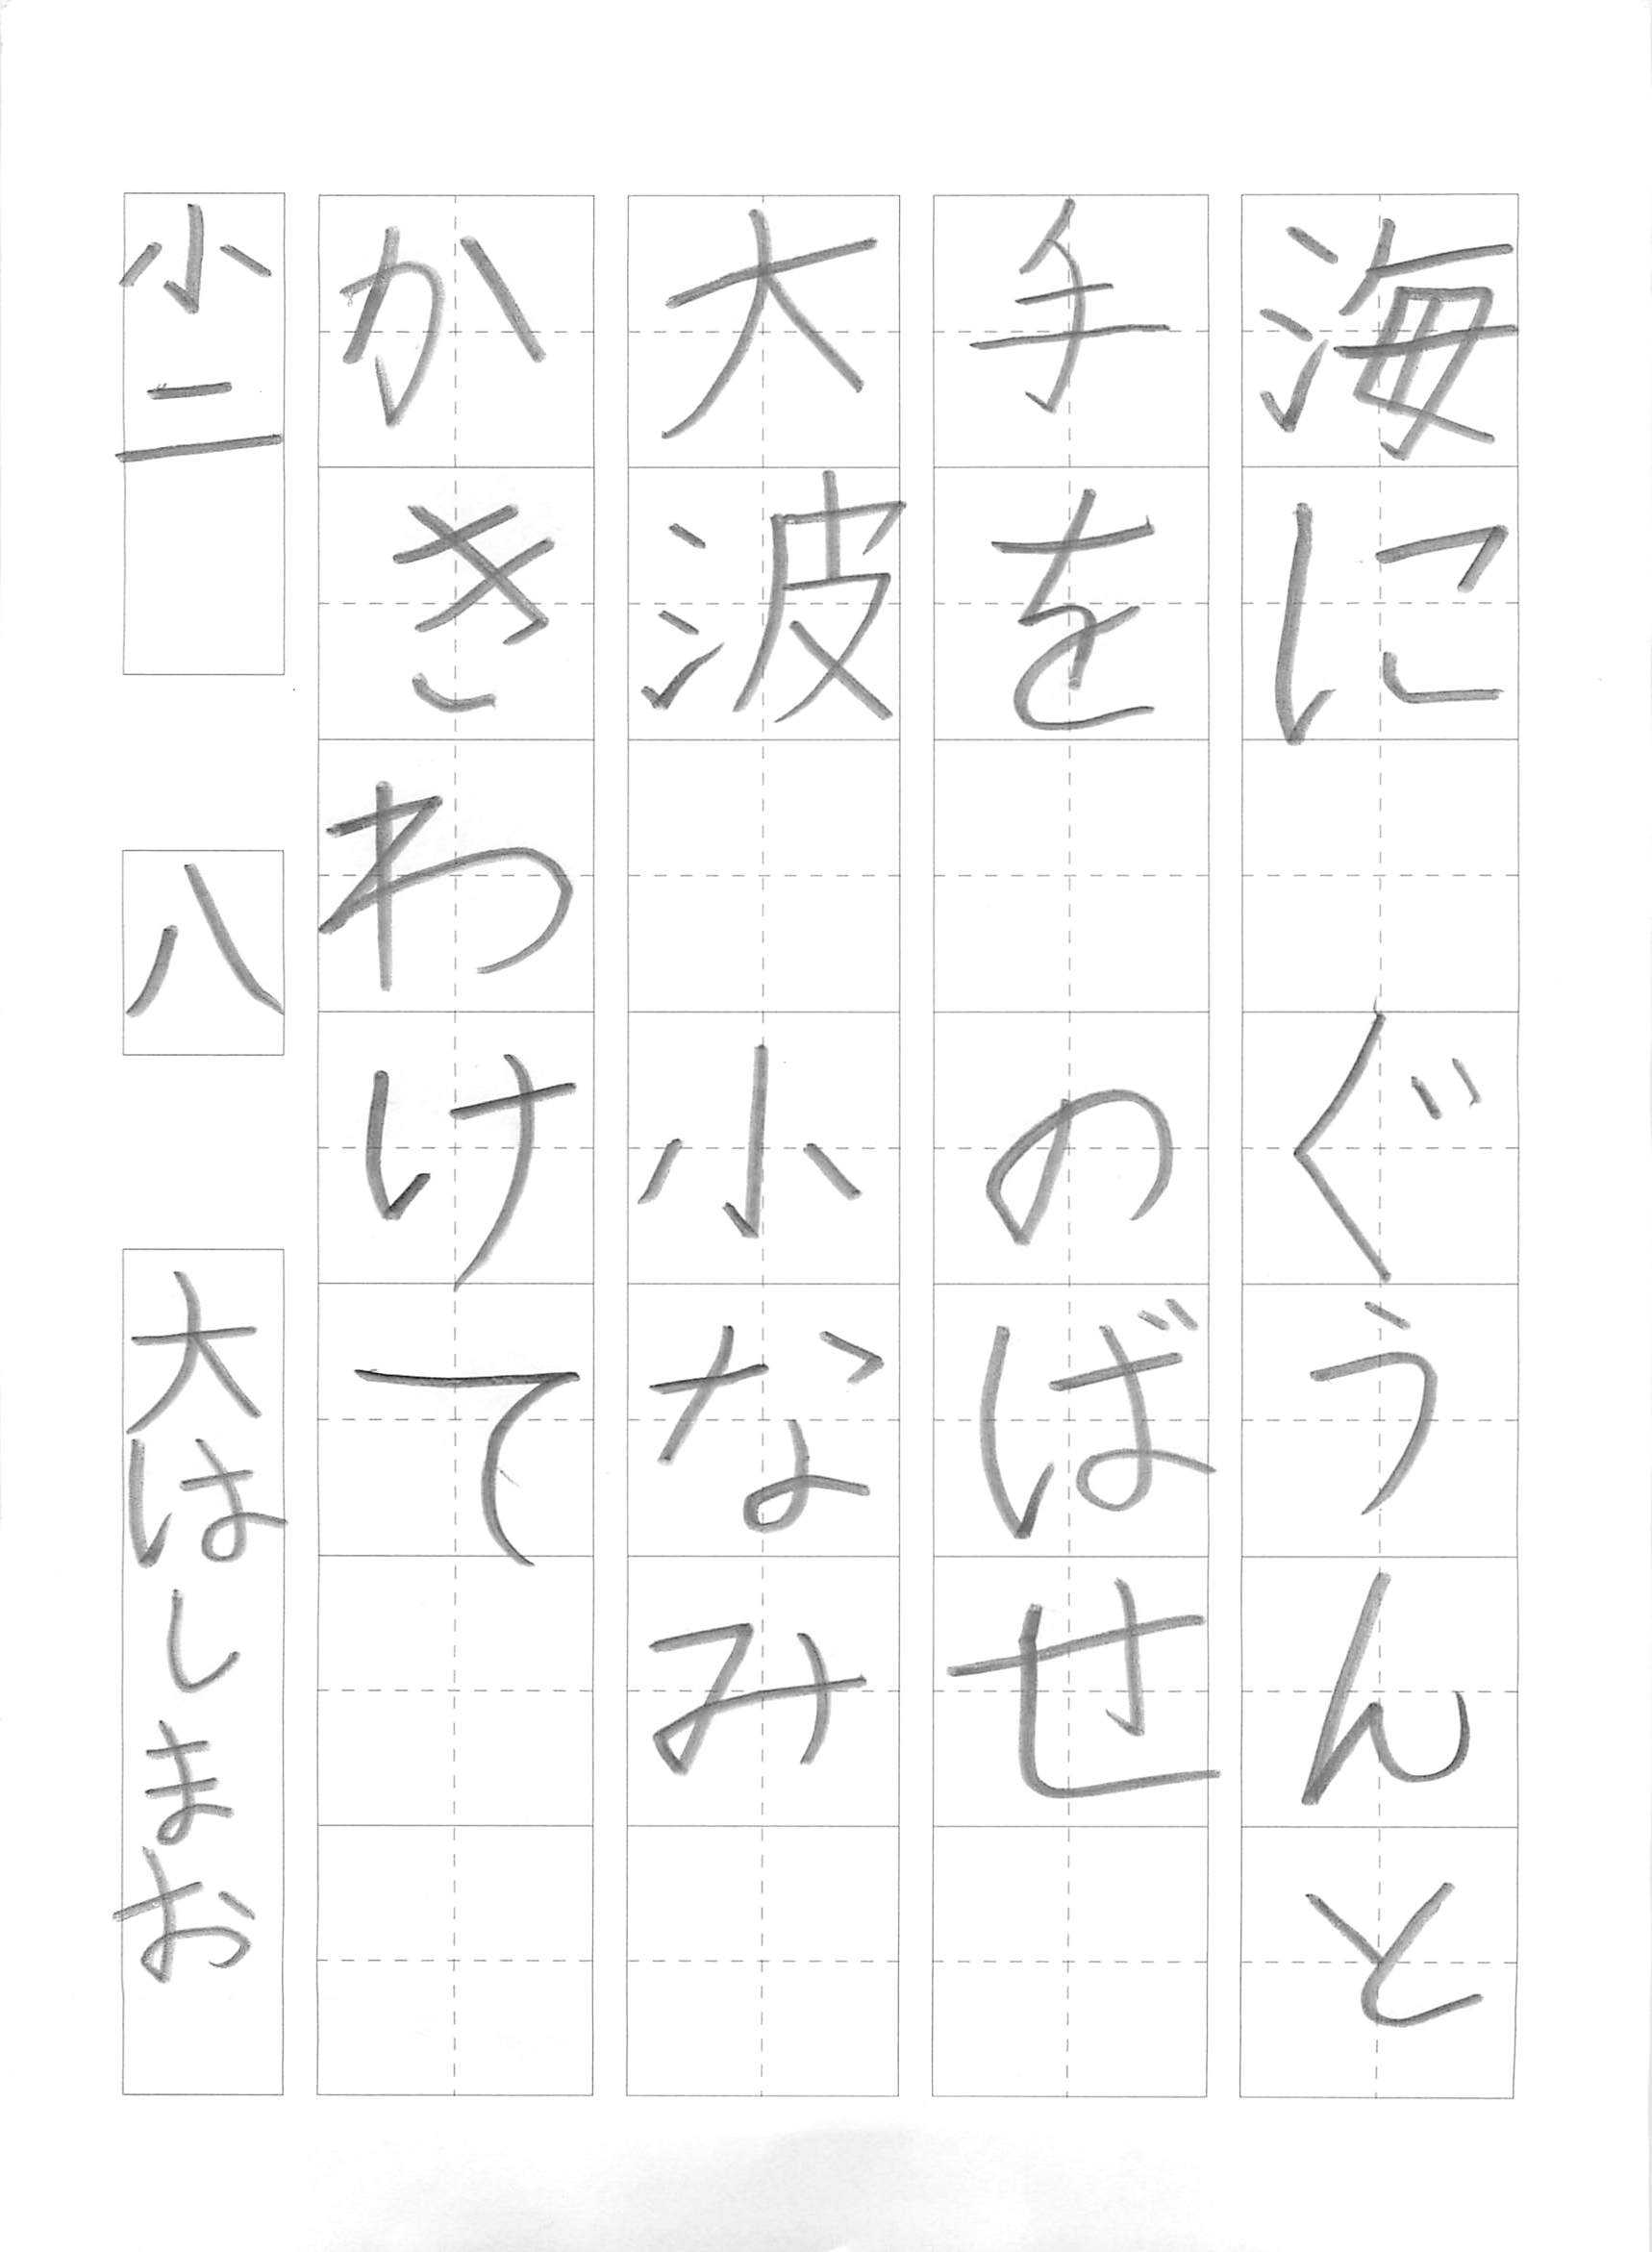 海に ぐうんと
手を のばせ
大波 小なみ
かきわけて
小二 八 大はしまお